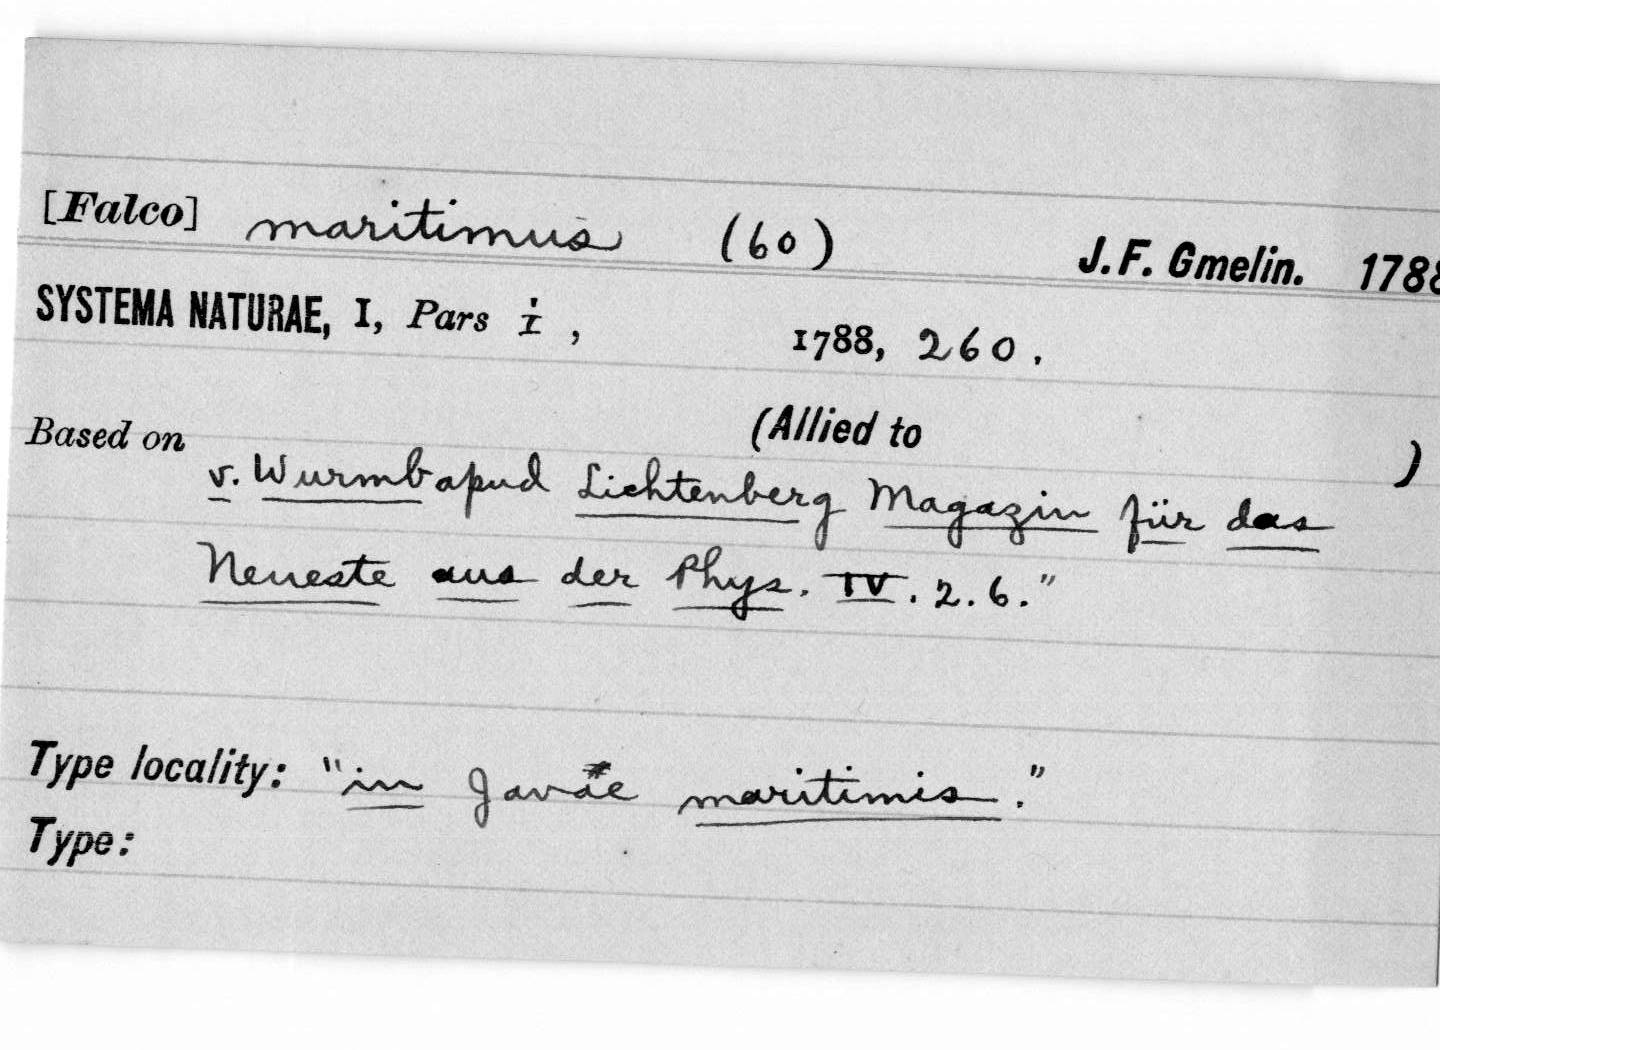 [Falco] maritimus (60) J. F. Gmelin. 1788
SYSTEMA NATURAE, I, Pars i, 1788, 260.
Based on (Allied to )
v. Wurmb apud Lichtenberg Magazin für das
Neueste aus der Phys. IV. 2. 6."
Type locality: "in Javae maritimis."
Type: